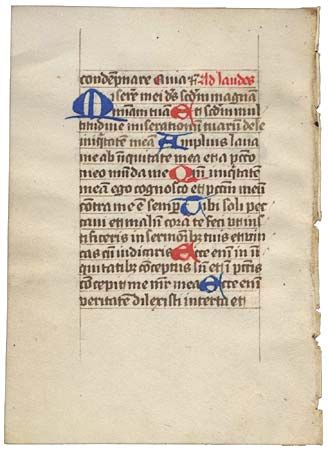 condēpnare Quia rͥ. Ad laudes
Miserere mei dˢ scdm̄ magnā
mīam tuā Et scdm̄ mul
titudinē miserationū tuarū dele
iniqͥtatē meā Amplius laua
me ab īiquitate mea et a pcc̄o
meo munda me Qm̄ iniqͥtatē
meam ego cognosco et pccm̄ meū
contra me ē semꝑ Tibi soli pec
caui et malū corā te feci vt ius
tificeris in sermonibꝫ tuis et vin
cas cū iudicaris Ecce enī in in
quitatibꝫ conceptus sū et in pctīs
concepit me mr̄ mea Ecce enī
veritatē dilexisti incerta et